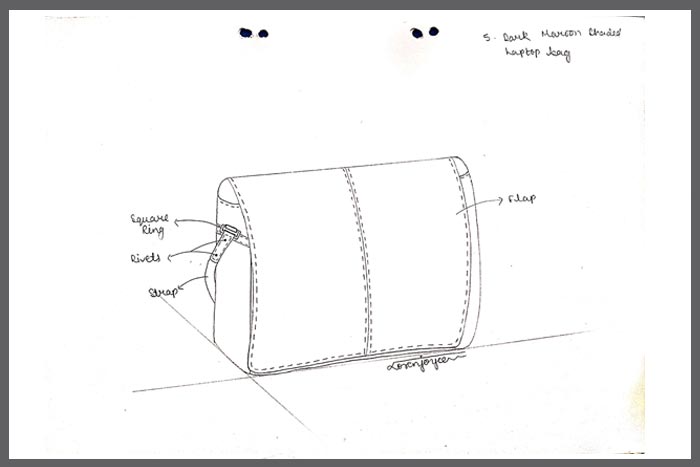 5. Dark Maroon Shaded
Laptop bag
Flap
Square
Ring
Rivets
Strap